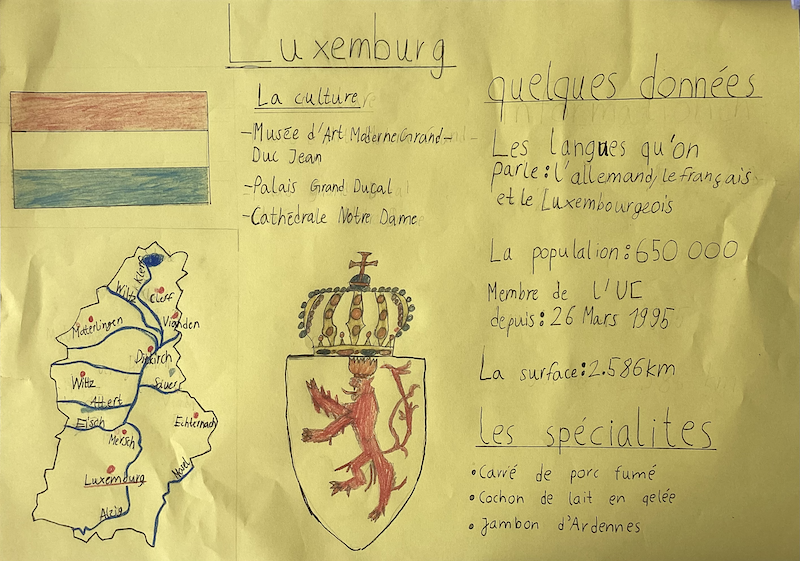 Luxemburg
La culture
-Musée d'Art Moderne Grand-
Duc Jean
-Palais Grand Ducal
-Cathédrale Notre Dame
quelques données
Les langues qu'on
parle: l'allemand, le français
et le Luxembourgeois
La population: 650 000
Membre de l'UC
depuis: 26 Mars 1995
La surface: 2.586km
les spécialites
• Carré de porc fumé
• Cochon de lait en gelée
• Jambon d'Ardennes
Klerf
Wiltz
Cleff
Matterlingen
Vianden
Diekirch
Wiltz
Sauer
Attert
Eisch
Echternach
Mersch
Mosel
Luxemburg
Alzig